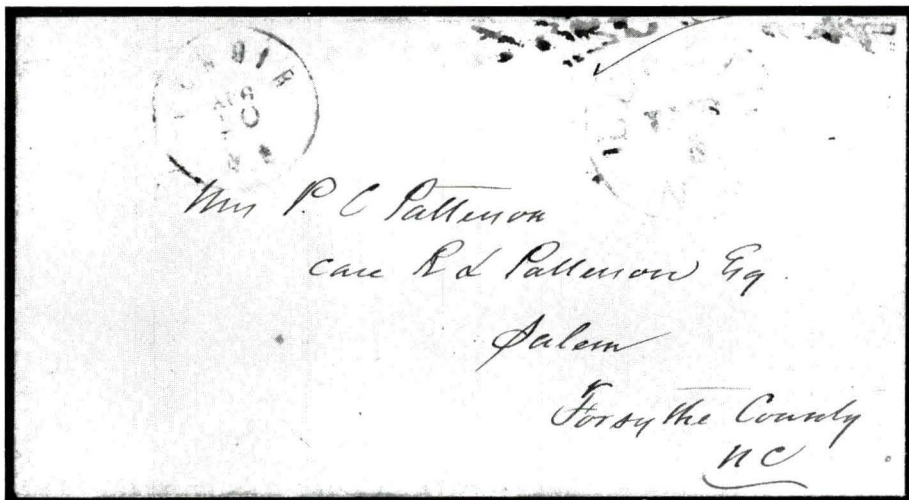 Mrs P. C Patterson
care R L Patterson Esq.
Salem
Forsythe County
NC